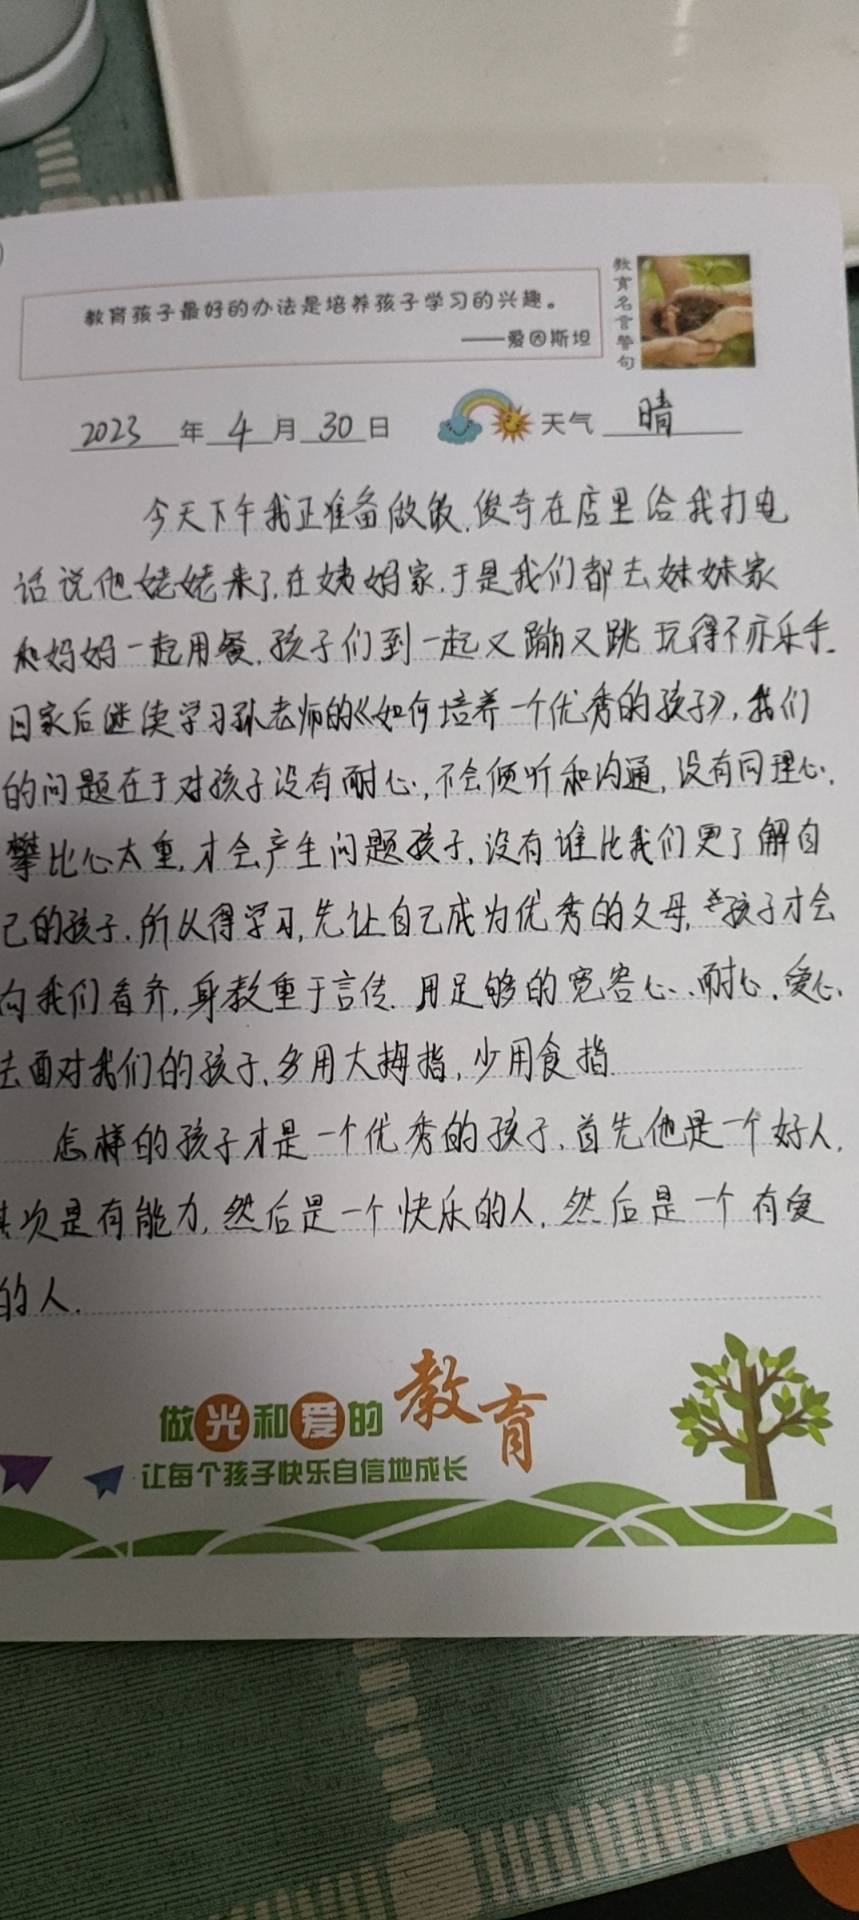 教育孩子最好的办法是培养孩子学习的兴趣。
——爱因斯坦
教育名言警句
2023年4月30日 天气 晴
今天下午我正准备做饭,俊奇在店里给我打电
话说他姥姥来了,在姨妈家,于是我们都去妹妹家
和妈妈一起用餐,孩子们到一起又蹦又跳玩得不亦乐乎.
回家后继续学习孙老师的《如何培养一个优秀的孩子》,我们
的问题在于对孩子没有耐心,不会倾听和沟通,没有同理心,
攀比心太重,才会产生问题孩子,没有谁比我们更了解自
己的孩子,所以得学习,先让自己成为优秀的父母,孩子才会
向我们看齐,身教重于言传.用足够的宽容心、耐心、爱心,
去面对我们的孩子,多用大拇指,少用食指.
怎样的孩子才是一个优秀的孩子,首先他是一个好人,
其次是有能力,然后是一个快乐的人,然后是一个有爱
的人.
做光和爱的教育
让每个孩子快乐自信地成长